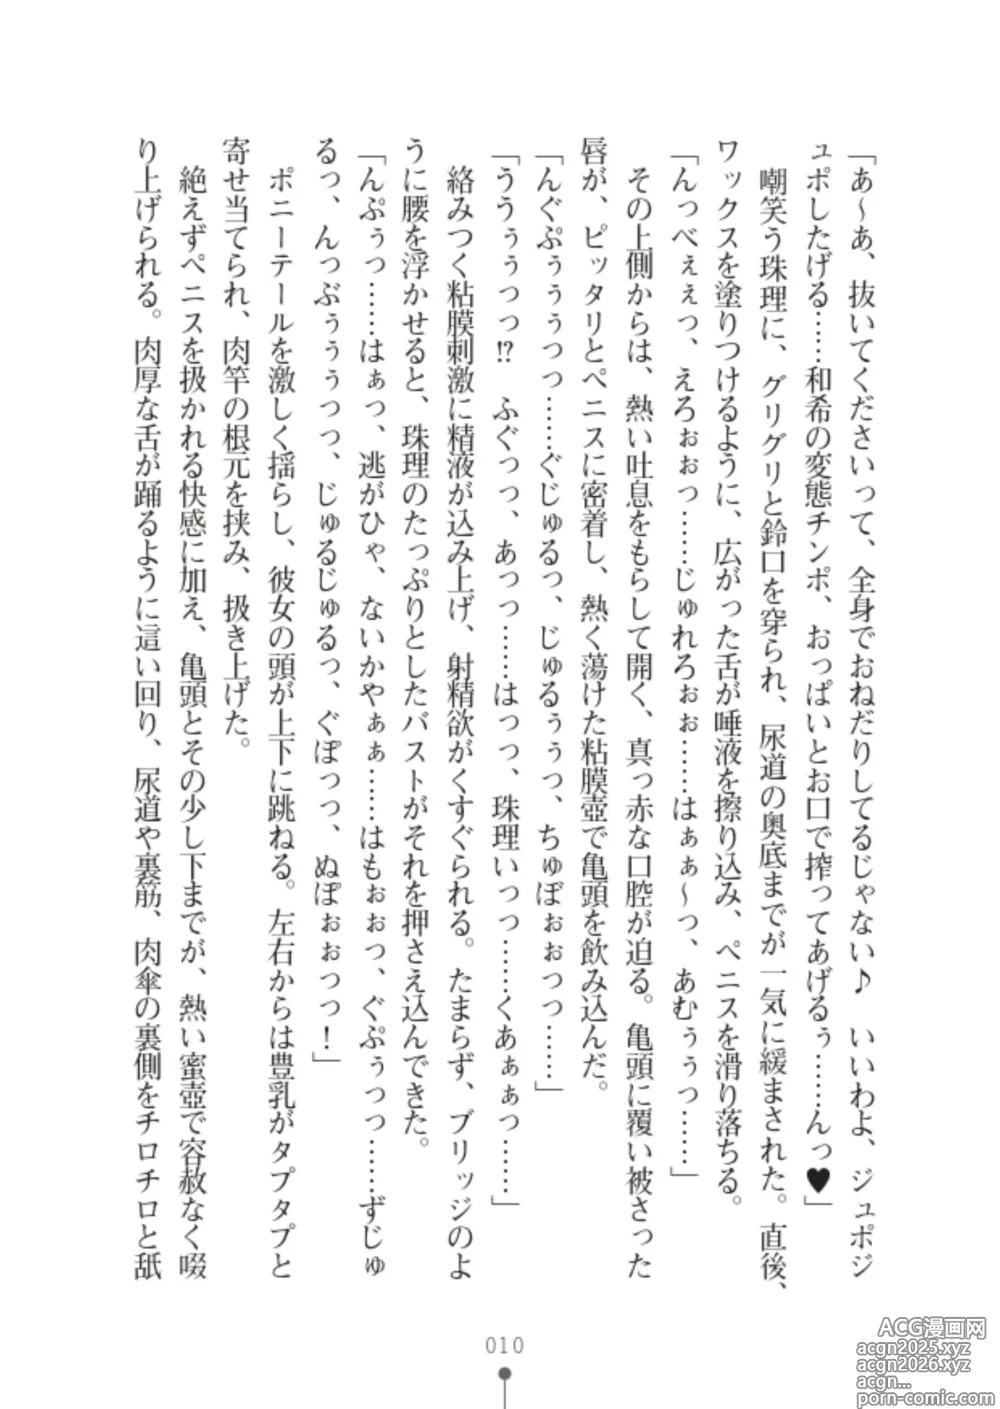 「あ～あ、抜いてくださいって、全身でおねだりしてるじゃない♪　いいわよ、ジュポジ
ュポしたげる……和希の変態チンポ、おっぱいとお口で搾ってあげるぅ……んっ♥」
　嘲笑う珠理に、グリグリと鈴口を穿られ、尿道の奥底までが一気に緩まされた。直後、
ワックスを塗りつけるように、広がった舌が唾液を擦り込み、ペニスを滑り落ちる。
「んっべぇぇっ、えろぉぉっ……じゅれろぉぉ……はぁぁ～っ、あむぅぅっ……」
　その上側からは、熱い吐息をもらして開く、真っ赤な口腔が迫る。亀頭に覆い被さった
唇が、ピッタリとペニスに密着し、熱く蕩けた粘膜壺で亀頭を飲み込んだ。
「んぐぷぅぅぅっっ……ぐじゅるっ、じゅるぅぅっ、ちゅぼぉぉっっ……」
「ううぅぅっっ!?　ふぐっっ、あっっ……はっっ、珠理いっっ……くあぁぁっ……」
　絡みつく粘膜刺激に精液が込み上げ、射精欲がくすぐられる。たまらず、ブリッジのよ
うに腰を浮かせると、珠理のたっぷりとしたバストがそれを押さえ込んできた。
「んぷぅっ……はぁっ、逃がひゃ、ないかやぁぁ……はもぉぉっ、ぐぷぅっっ……ずじゅ
るっ、んっぶぅぅぅっっ、じゅるじゅるっ、ぐぽっっ、ぬぽぉぉっっ！」
　ポニーテールを激しく揺らし、彼女の頭が上下に跳ねる。左右からは豊乳がタプタプと
寄せ当てられ、肉竿の根元を挟み、扱き上げた。
　絶えずペニスを扱かれる快感に加え、亀頭とその少し下までが、熱い蜜壺で容赦なく啜
り上げられる。肉厚な舌が踊るように這い回り、尿道や裏筋、肉傘の裏側をチロチロと舐
010
ACG漫画网
acgn2025.xyz
acgn2026.xyz
acgn...
porn-comic.com